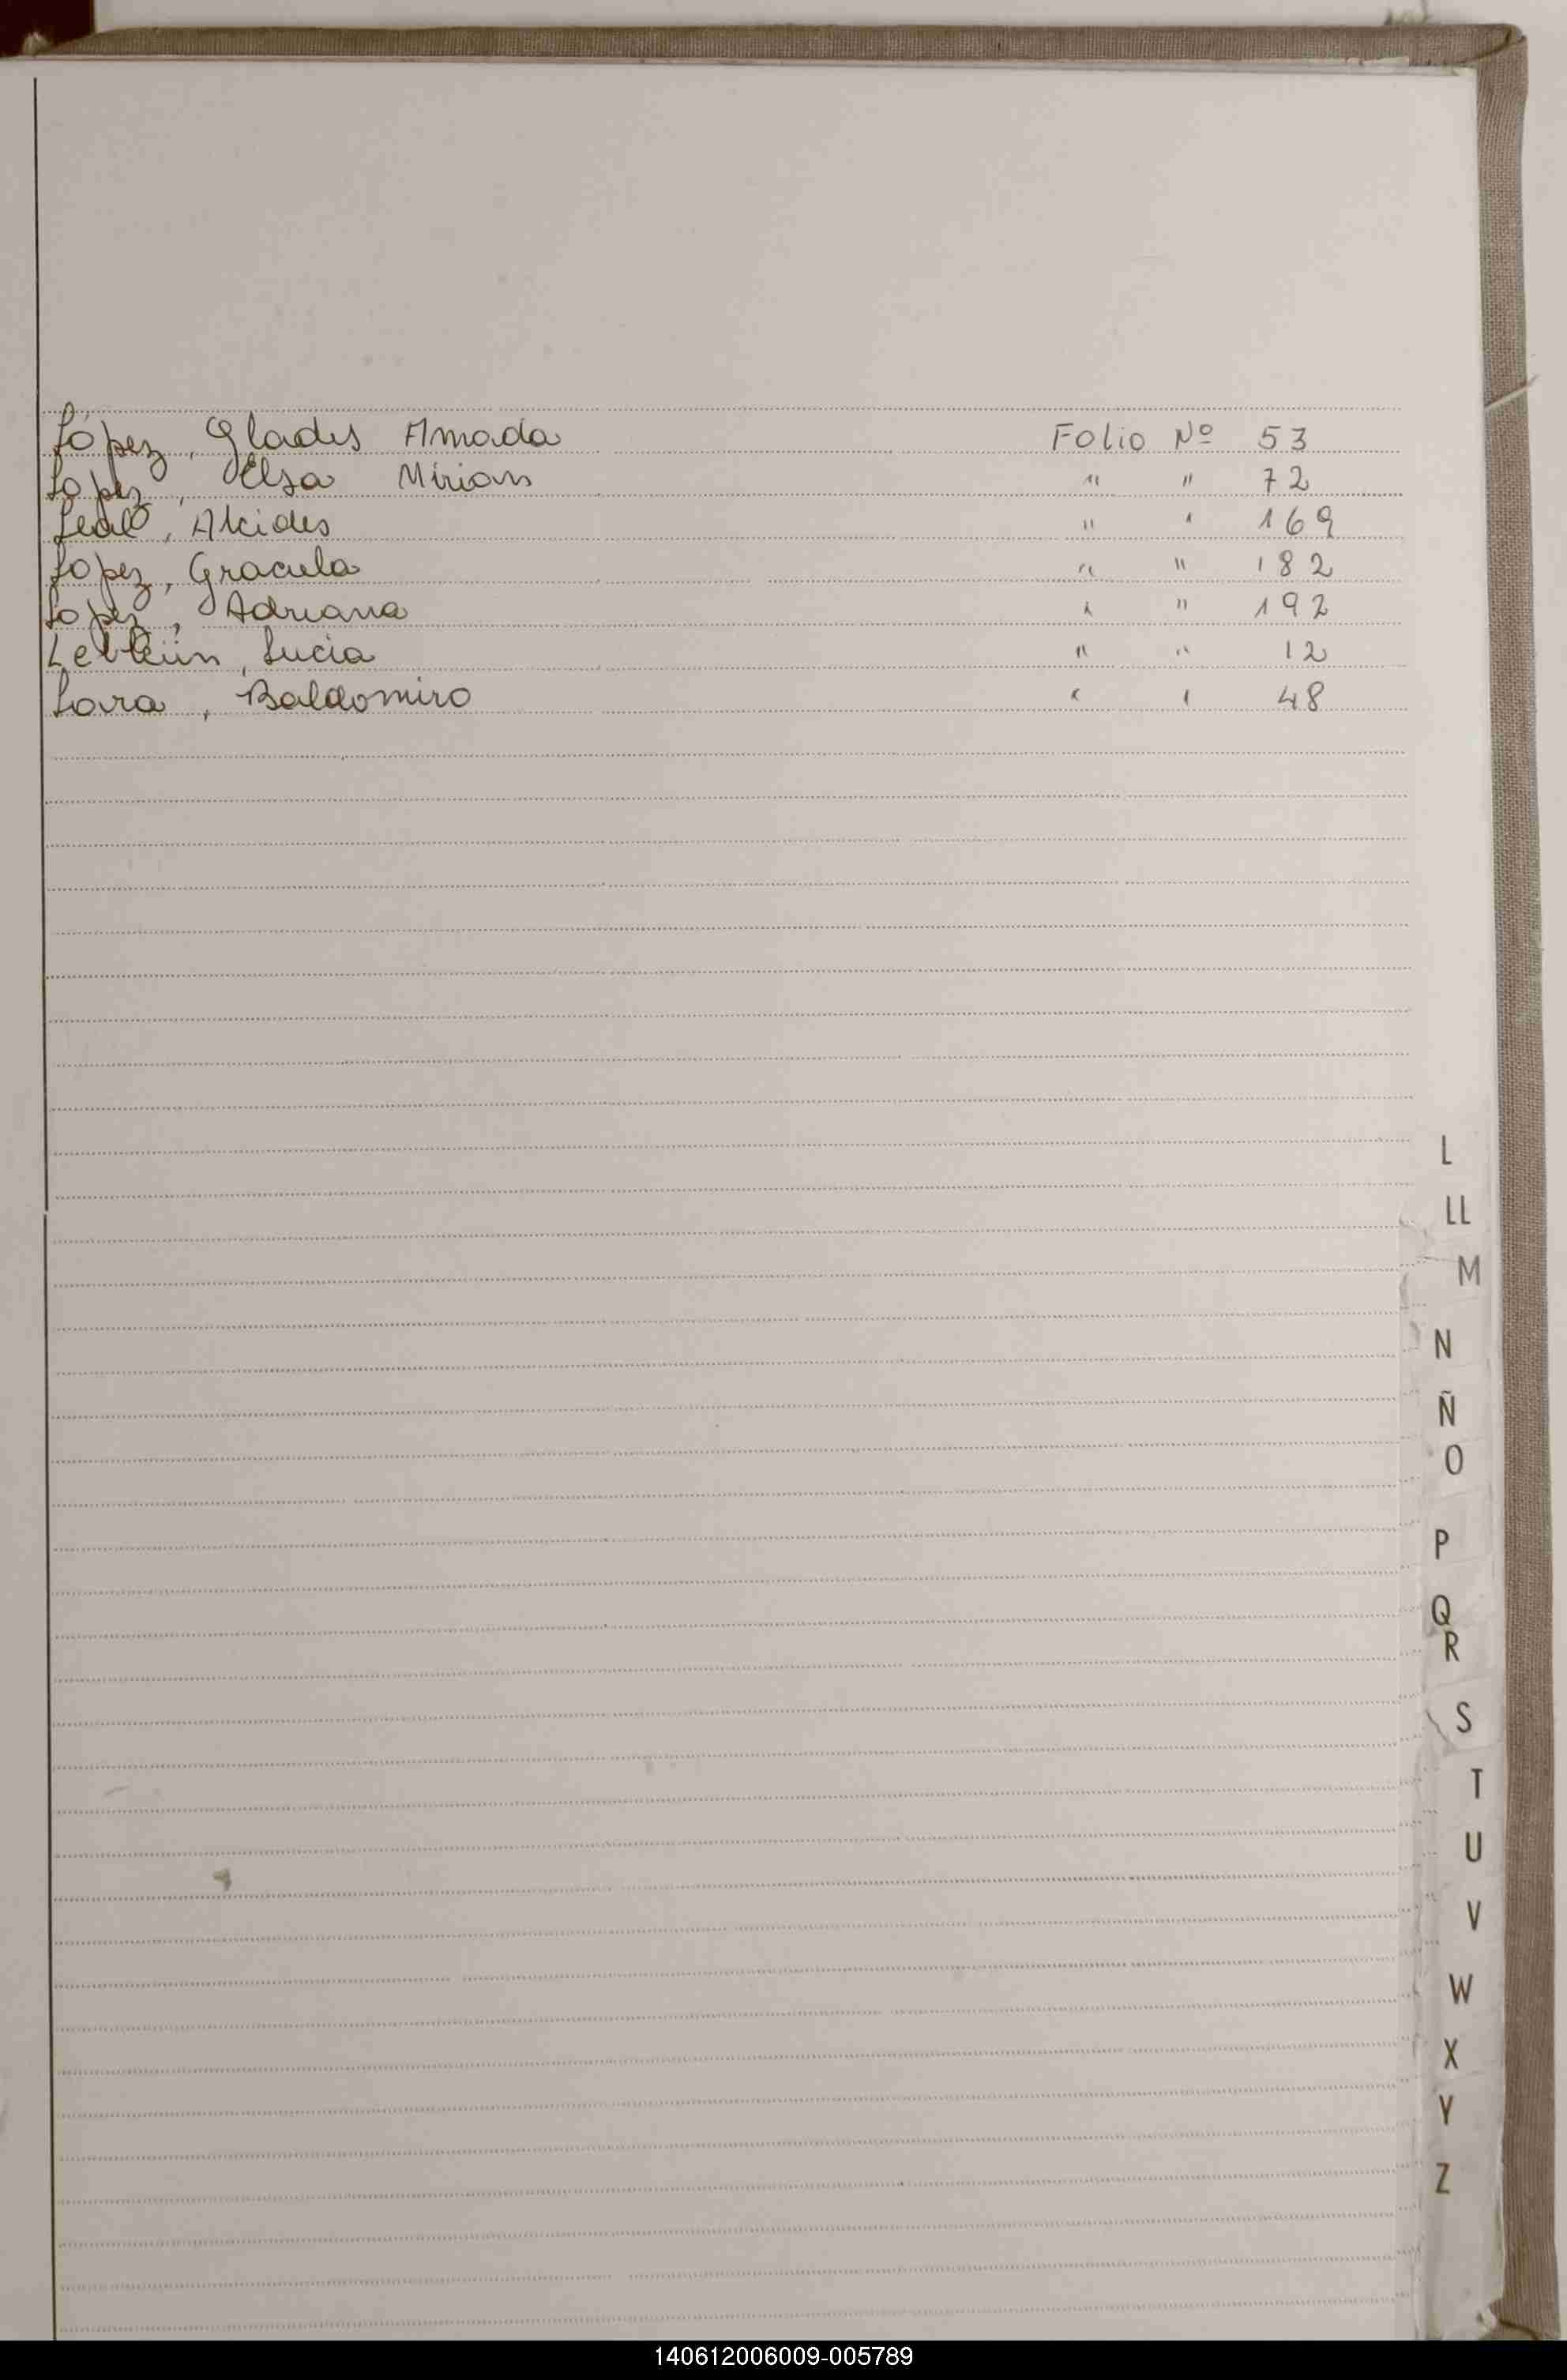 López, Gladis Amada Folio Nº 53
Lopez, Elsa Mirian " " 72
Leal, Alcides " " 169
Lopez, Graciela " " 182
Lopez, Adriana " " 192
Lucia " " 12
Lara, Baldomiro " " 48
L
LL
M
N
Ñ
O
P
Q
R
S
T
U
V
W
X
Y
Z
140612006009-005789